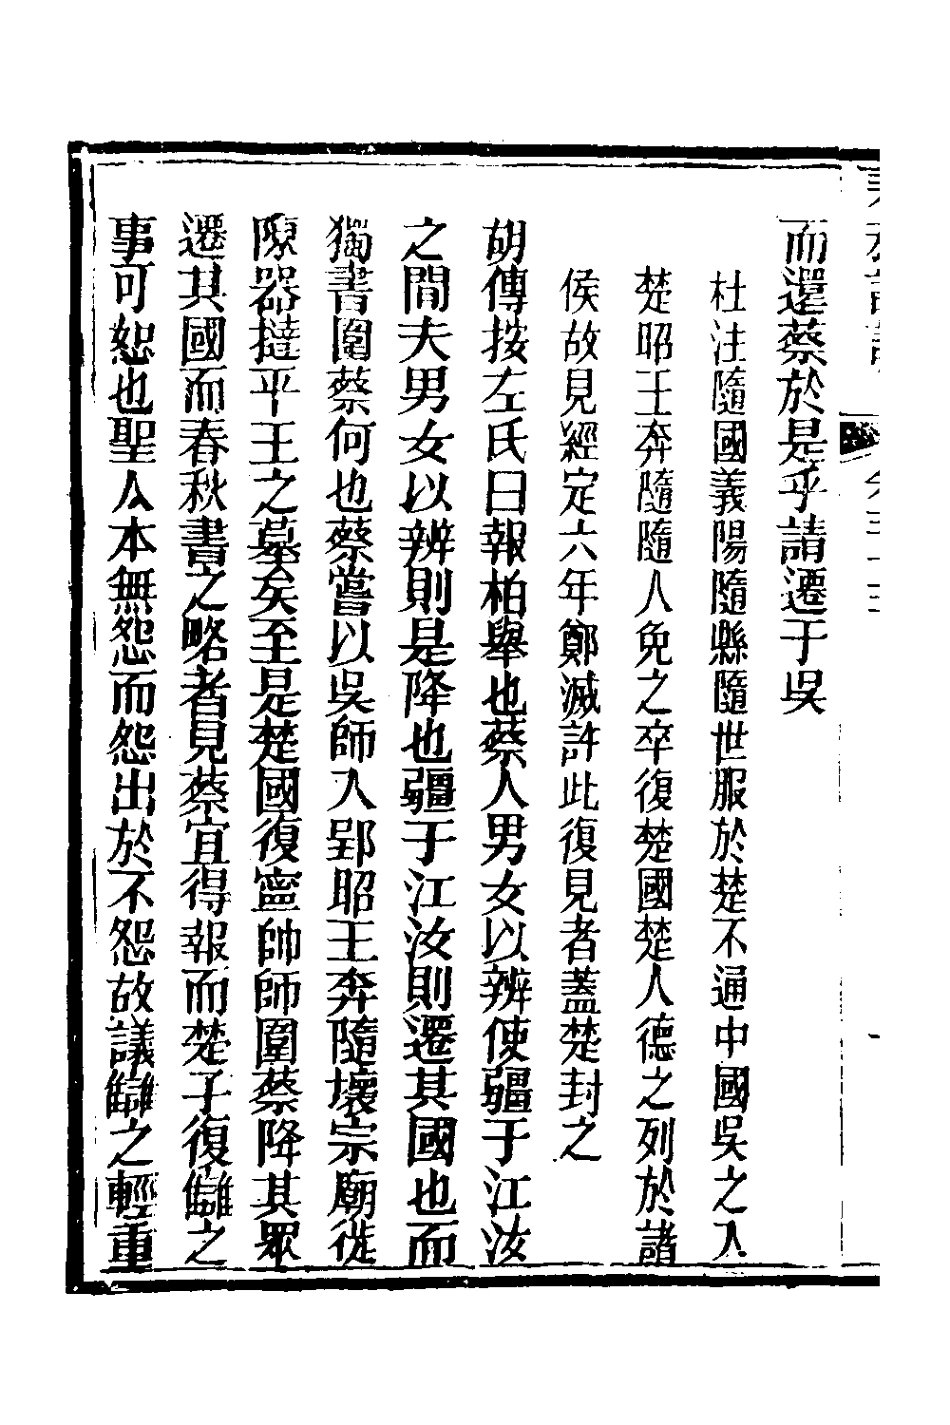 而還蔡於是乎請遷于吳
杜注隨國義陽隨縣隨世服於楚不通中國吳之入
楚昭王奔隨隨人免之卒復楚國楚人德之列於諸
侯故見經定六年鄭滅許此復見者蓋楚封之
胡傳按左氏曰報柏舉也蔡人男女以辨使疆于江汝
之間夫男女以辨則是降也疆于江汝則遷其國也而
獨書圍蔡何也蔡嘗以吳師入郢昭王奔隨壞宗廟徙
陳器撻平王之墓矣至是楚國復寧帥師圍蔡降其眾
遷其國而春秋書之略者見蔡宜得報而楚子復讎之
事可恕也聖人本無怨而怨出於不怨故議讎之輕重